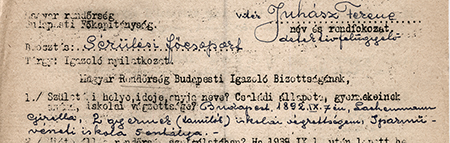 Magyar rendőrség
Budapesti Főkapitányság.
vdés Juhász Ferenc
név és rendfokozat,
detektivfelügyelő
Beosztás: Sérülési főcsoport
Tárgy: Igazoló nyilatkozat.
Magyar Rendőrség Budapesti Igazoló Bizottságának,
1./ Születési helye, ideje, anyja neve? Családi állapota, gyermekeinek
száma, iskolai végzettsége? Budapest, 1892. IX. 7-én,
Gizella, 2 gyermek (tanuló) iskolai végzettségem, Iparmű-
vészeti iskola 5 osztálya. -